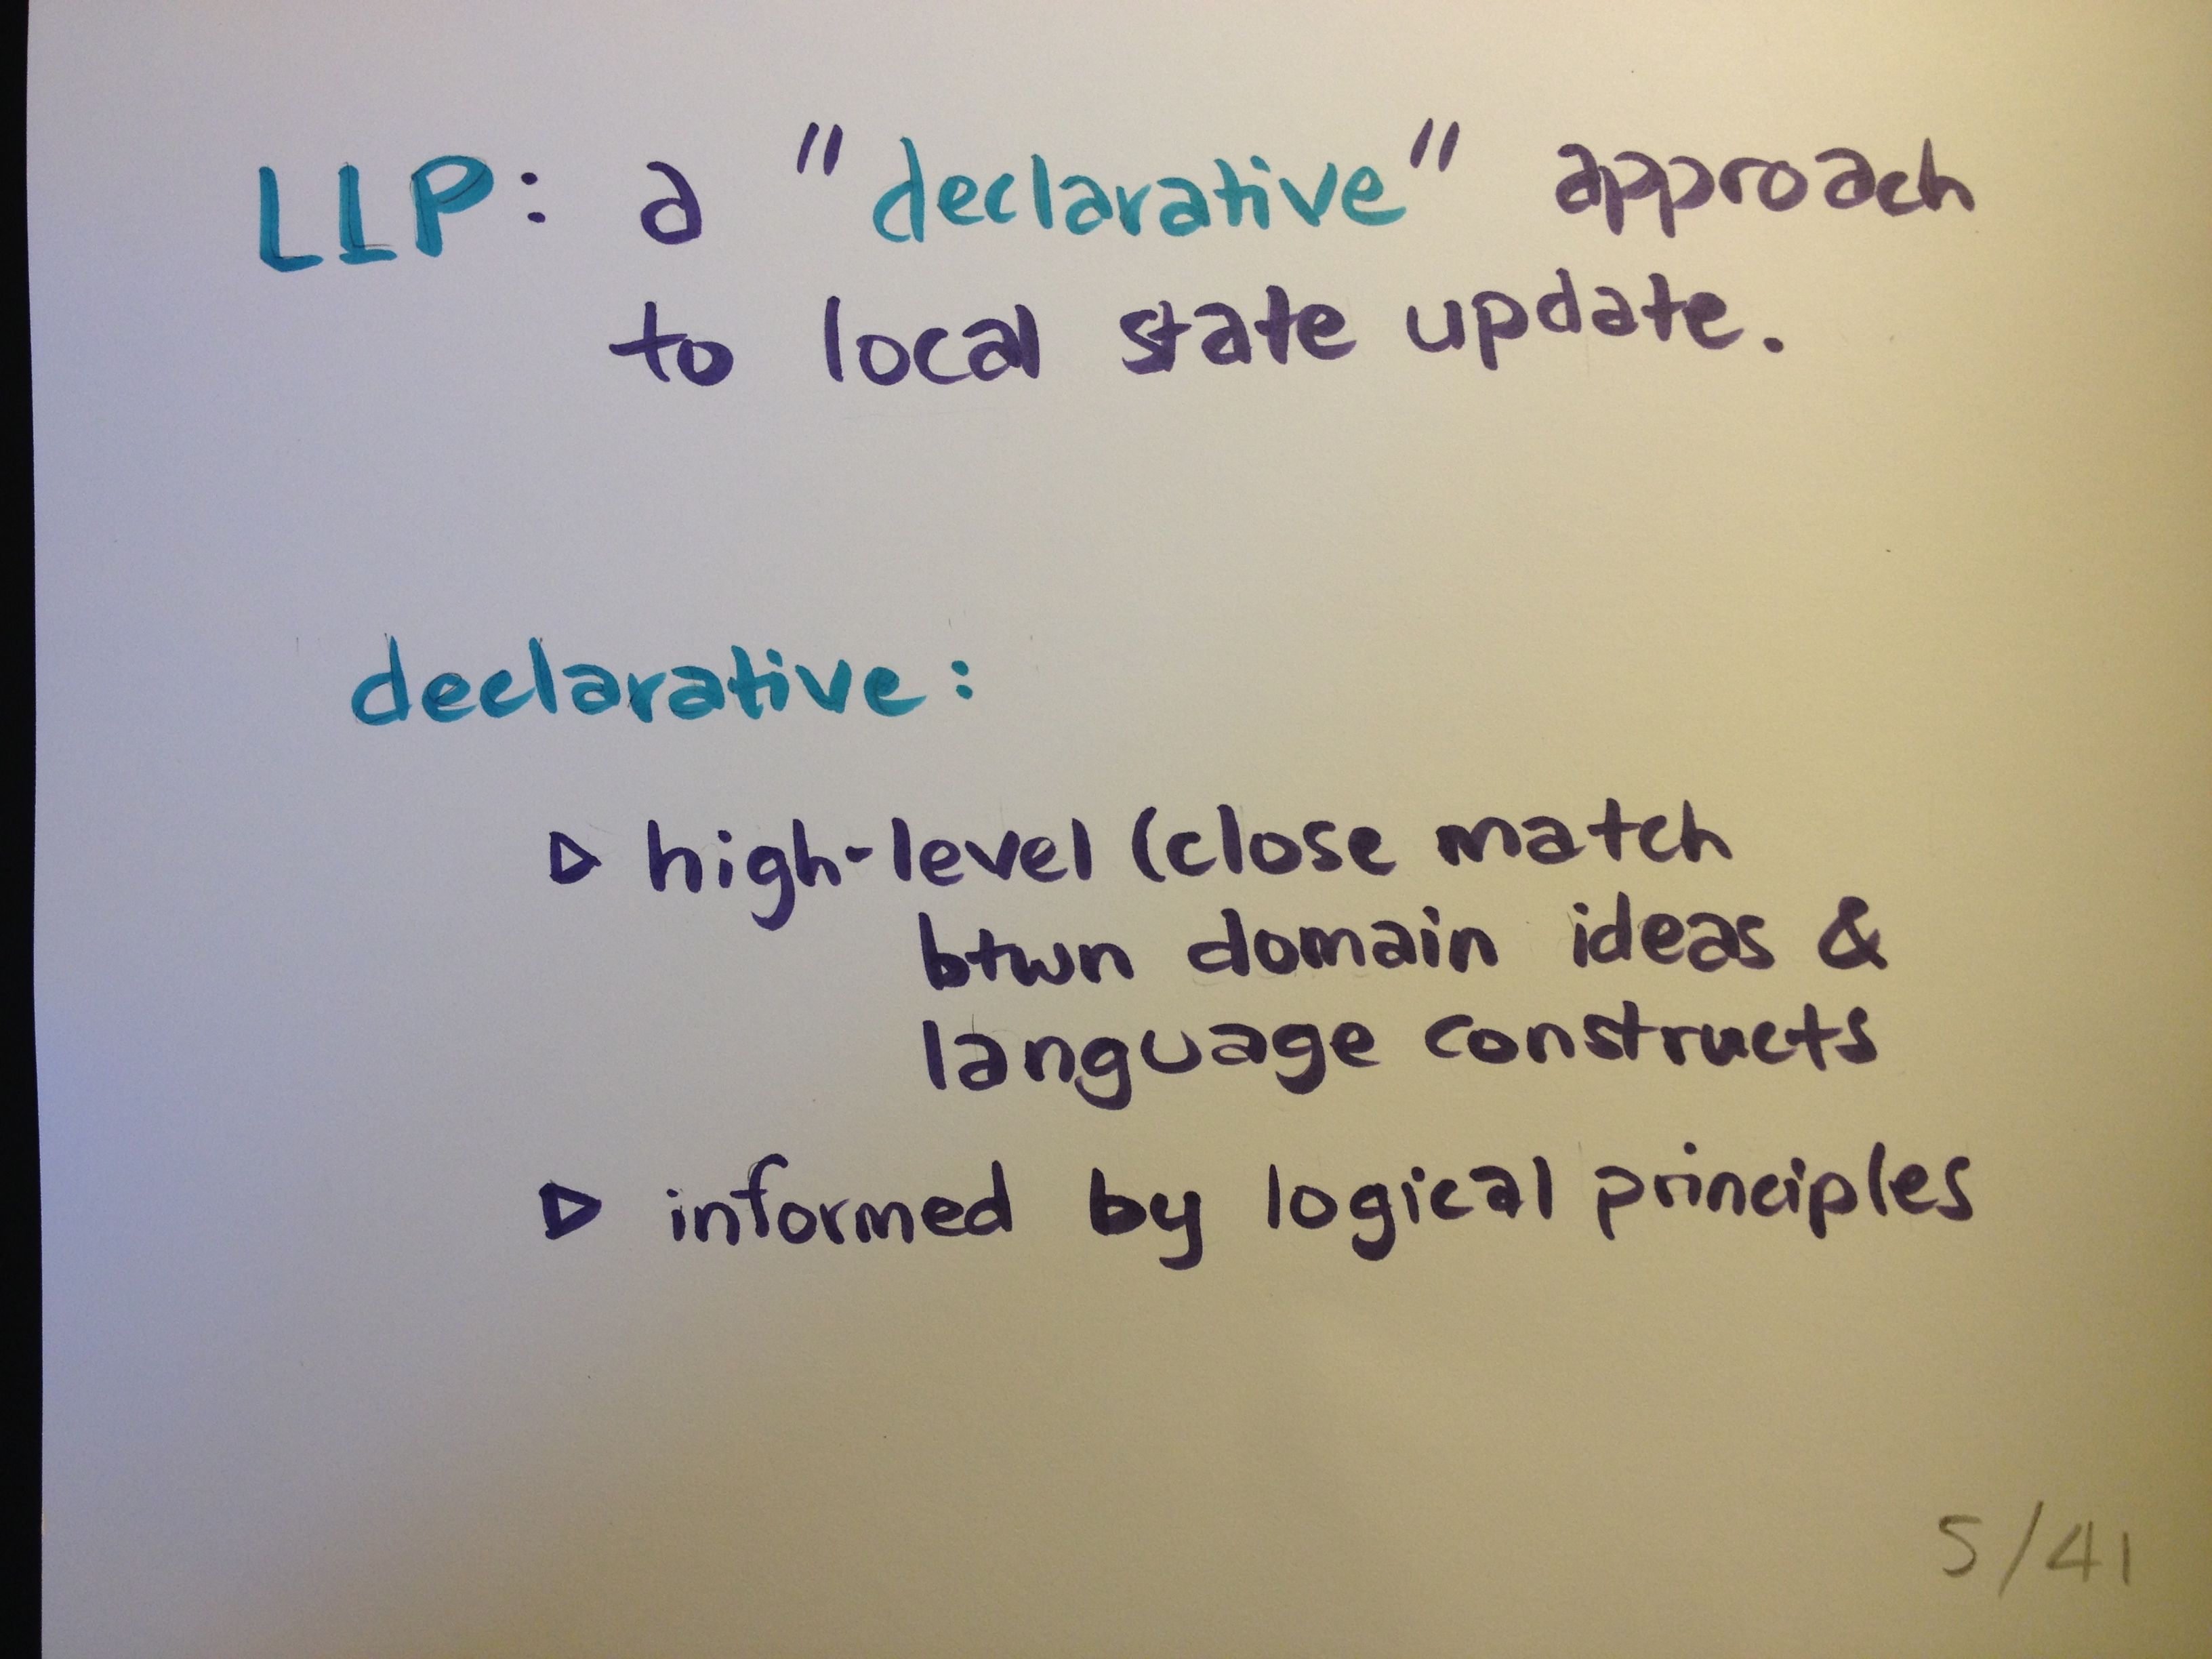 LLP: a "declarative" approach
to local state update.
declarative:
▷ high-level (close match
btwn domain ideas &
language constructs
▷ informed by logical principles
5/41